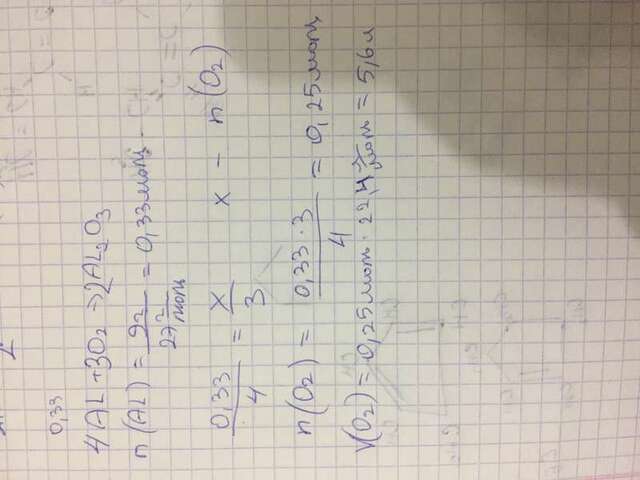 0,33
4AL + 3O₂ → 2AL₂O₃
n(AL) = 9г / 27 г/моль = 0,33моль
0,33/4 = x/3    x – n(O₂)
n(O₂) = 0,33·3 / 4 = 0,25моль
V(O₂) = 0,25моль · 22,4 л/моль = 5,6л